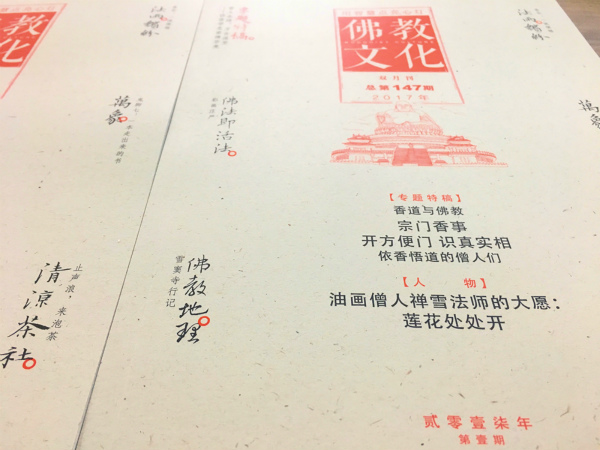 佛教
文化
双月刊
总第147期
2017年
【专题特稿】
香道与佛教
宗门香事
开方便门 识真实相
依香悟道的僧人们
【人 物】
油画僧人禅雪法师的大愿：
莲花处处开
贰零壹柒年
第壹期
佛法即活法
佛教地理
雪窦寺行记
萬象
清凉茶社
止声浪，来泡茶